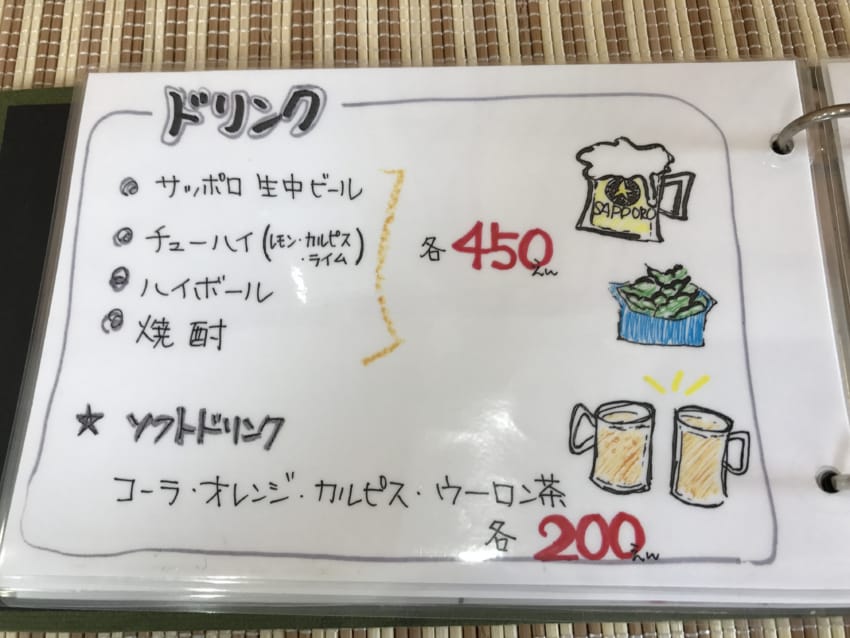 ドリンク
サッポロ 生中ビール
チューハイ (レモン・カルピス
・ライム)
ハイボール
焼酎
各 450えん
SAPPORO
★ ソフトドリンク
コーラ・オレンジ・カルピス・ウーロン茶
各 200えん